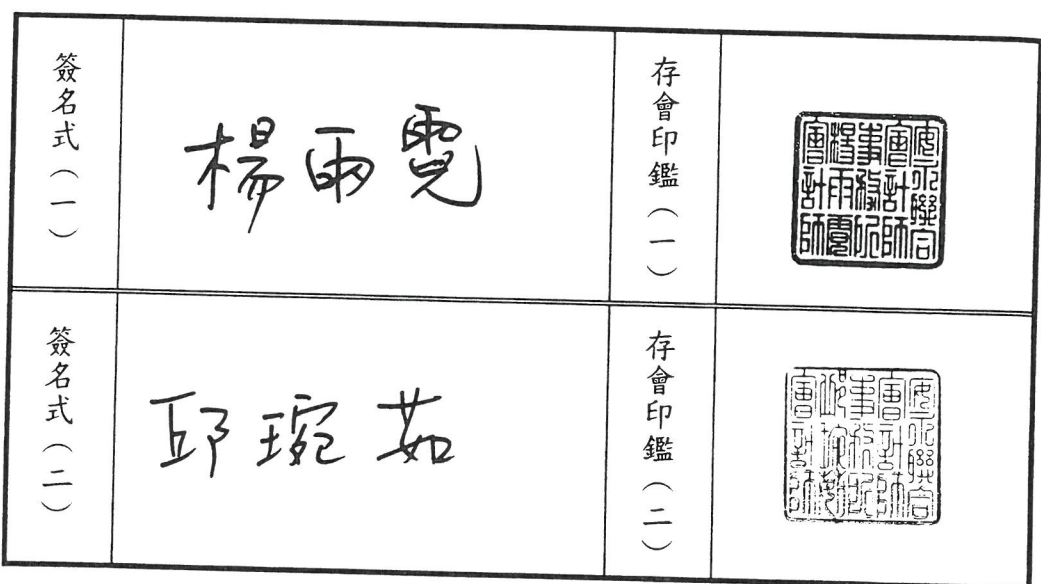 簽名式（一）
楊雨霓
存會印鑑（一）
安永聯合
會計師
事務所
楊雨霓
會計師
簽名式（二）
邱琬茹
存會印鑑（二）
安永聯合
會計師
事務所
邱琬茹
會計師